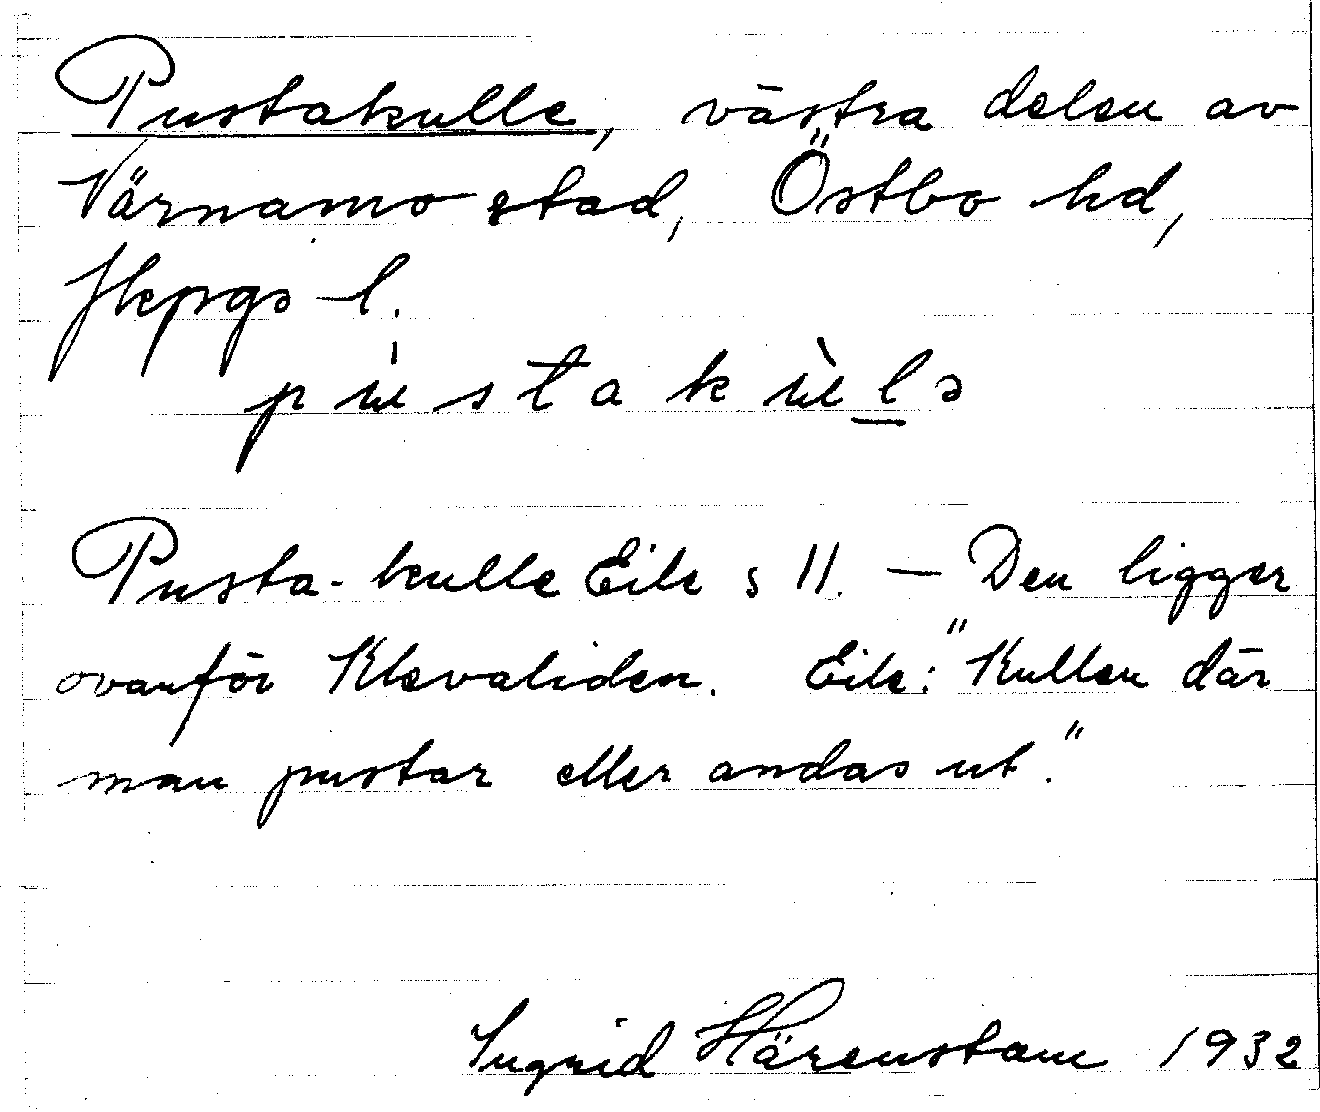 Pustakulle, västra delen av
Värnamo stad, Östbo hd,
Jkpgs l.
pústakùlə
Pusta-kulle Eile s 11. — Den ligger
ovanför Klevaliden. Eile: "Kullen där
man pustar eller andas ut."
Ingrid Härenstam 1932